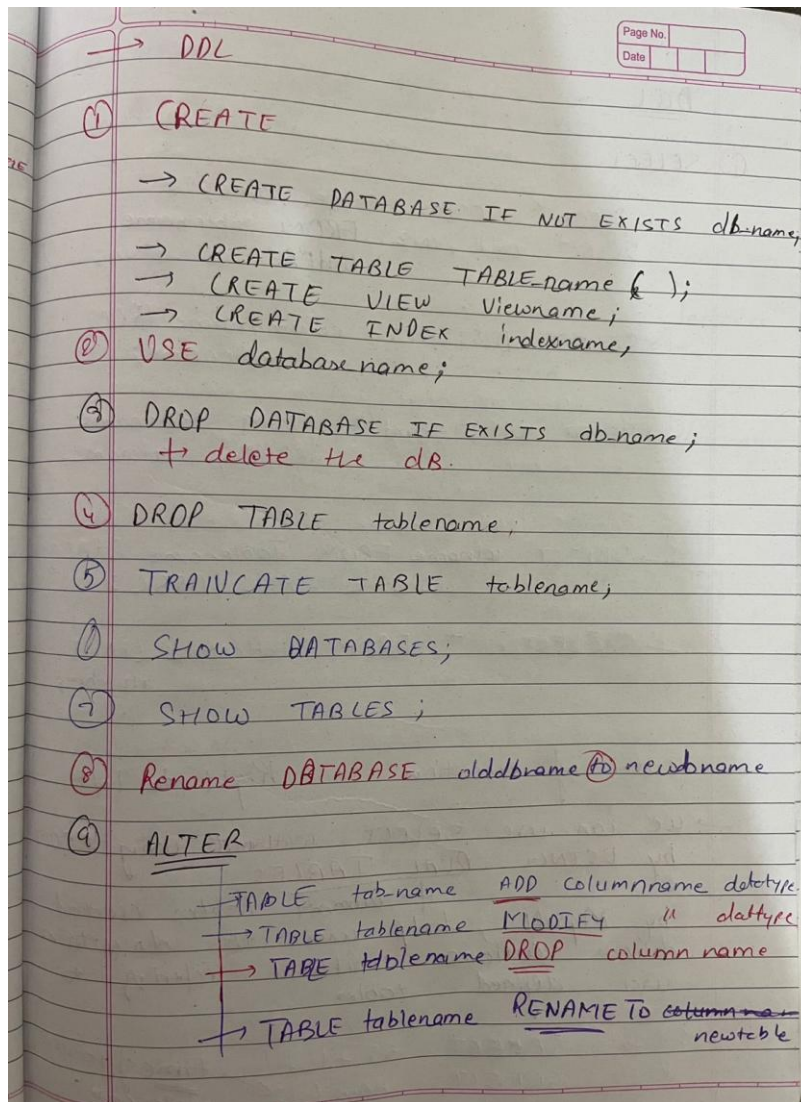 Page No.
Date
→ DDL
① CREATE
→ CREATE DATABASE IF NOT EXISTS db-name;
→ CREATE TABLE TABLE_name ( );
→ CREATE VIEW Viewname;
→ CREATE INDEX indexname,
② USE database name;
③ DROP DATABASE IF EXISTS db-name;
→ delete the dB.
④ DROP TABLE tablename;
⑤ TRAINCATE TABLE tablename;
SHOW DATABASES;
⑦ SHOW TABLES ;
⑧ Rename DATABASE olddbname to newdbname
⑨ ALTER
→ TABLE tab_name ADD columnname datatype.
→ TABLE tablename MODIFY " dattype
→ TABLE tablename DROP column name
→ TABLE tablename RENAME TO
newtable